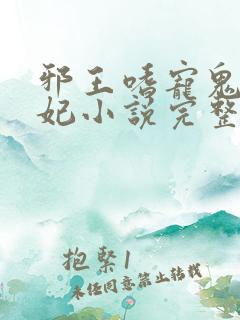 邪王嗜寵鬼
妃小說完整
抱緊1
未任同意禁止转载